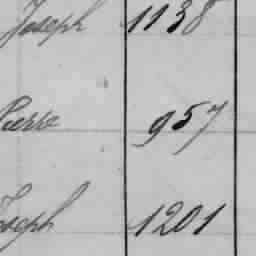 Joseph 1138
Pierre 957
Joseph 1201